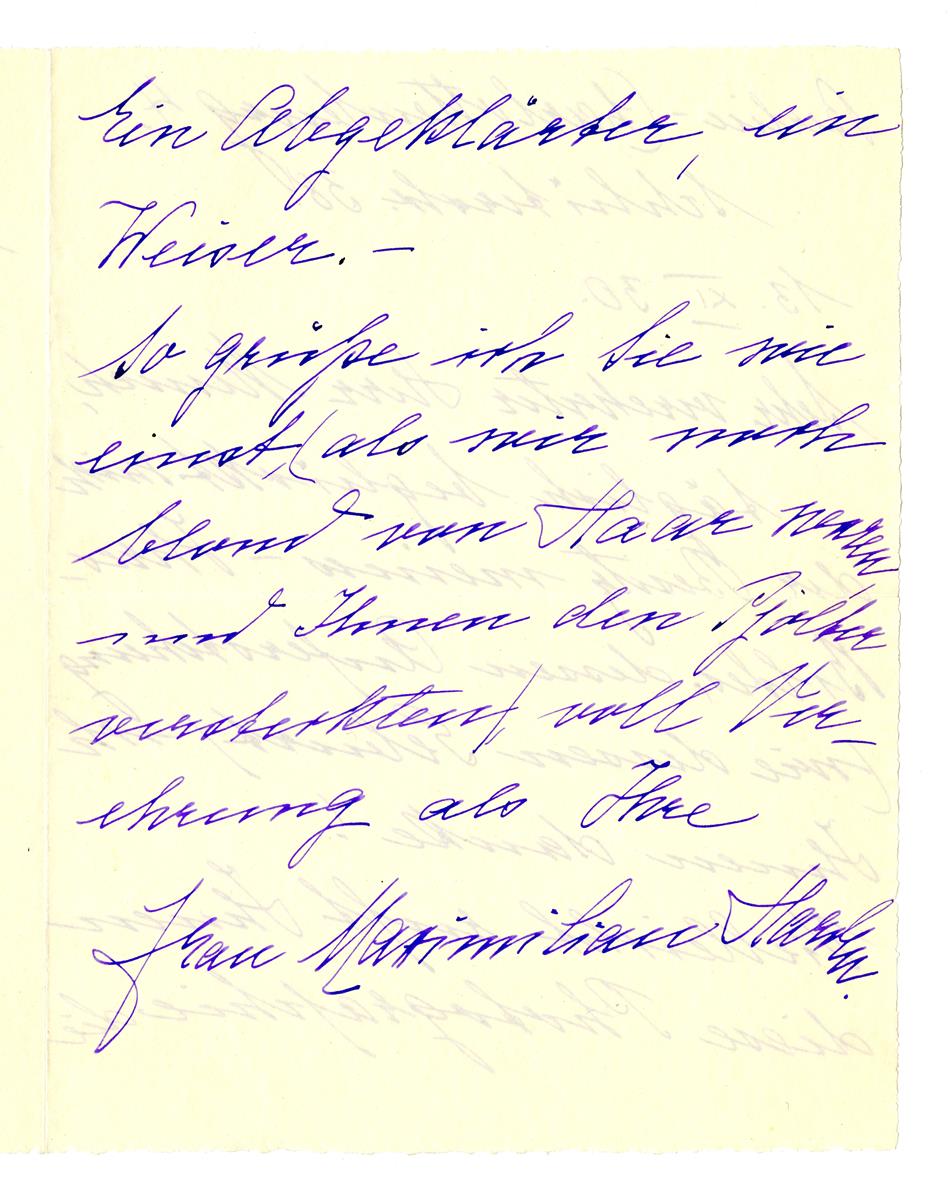 Ein Abgeklärter, ein
Weiser. –
So grüße ich Sie wie
einst, (als wir noch
blond von Haar waren,
und Ihnen den Pjolter
versteckten) voll Ver-
ehrung als Ihre
Frau Maximilian Harden.